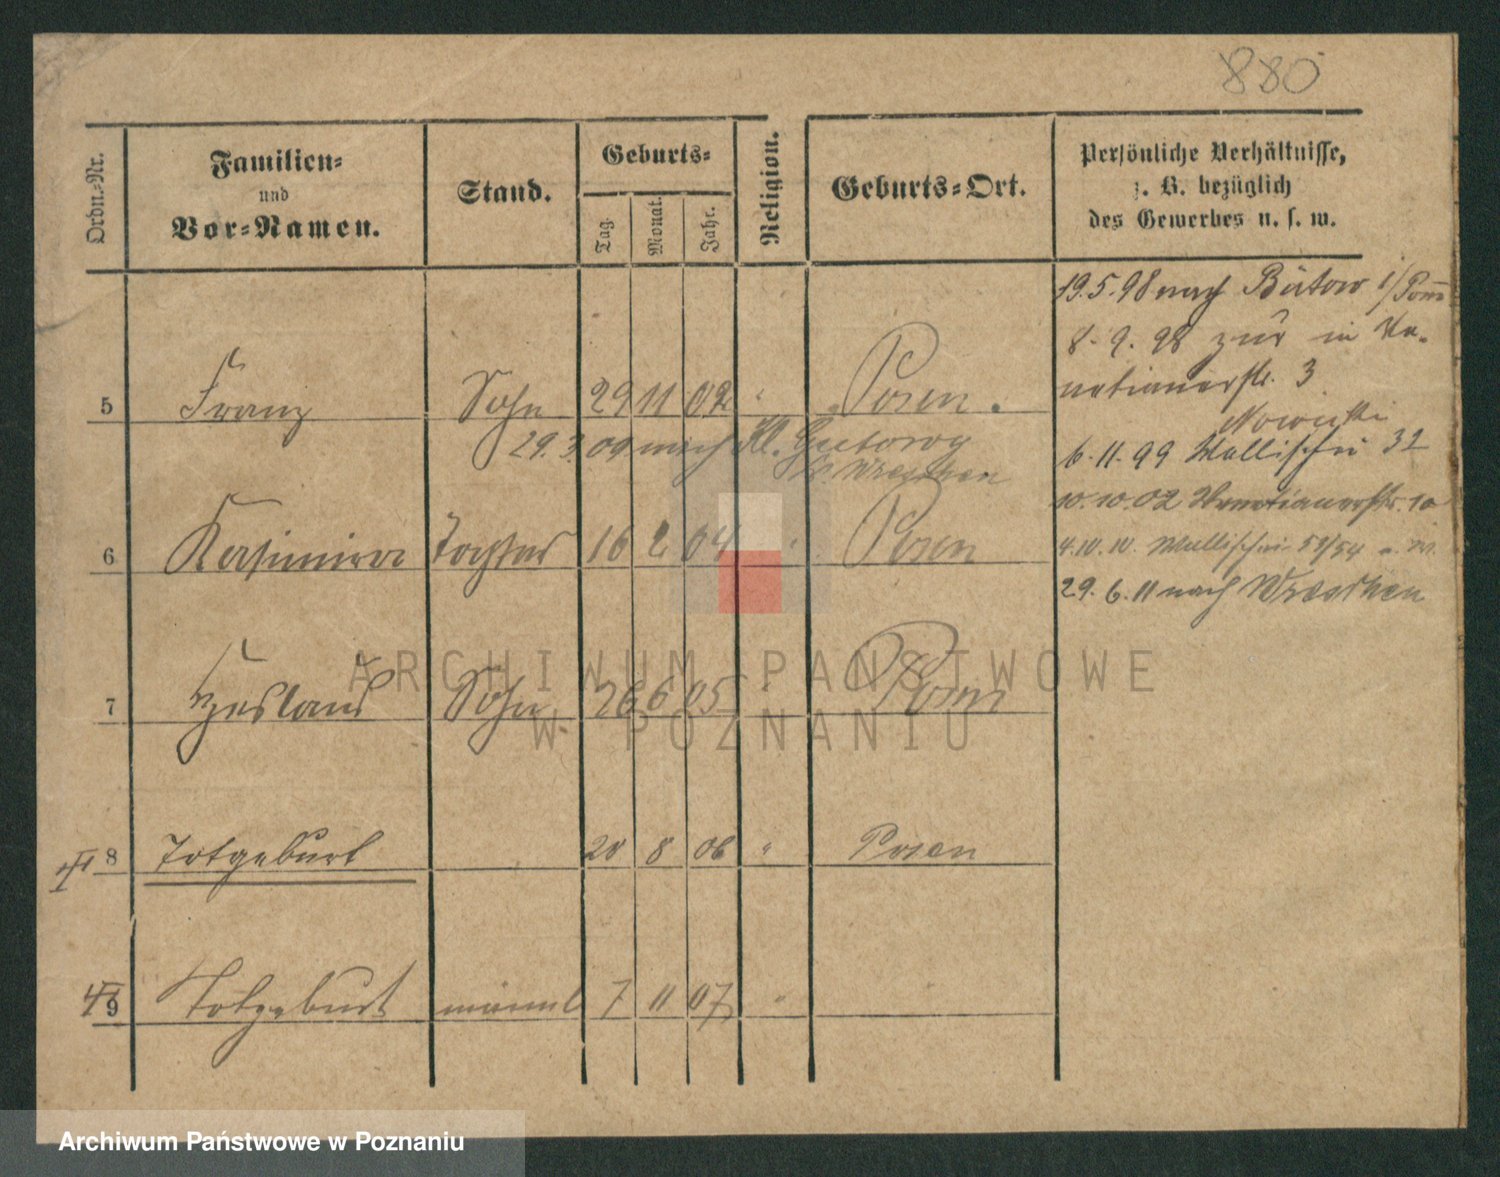 880
Ordn.-Nr.
Familien-
und
Vor-Namen.
Stand.
Geburts-
Tag.
Monat.
Jahr.
Religion.
Geburts-Ort.
Persönliche Verhältnisse,
z. B. bezüglich
des Gewerbes u. s. w.
19.5.98 nach Bütow i/Pom
8.9.98 zur in Ve-
netianerstr. 3
Nowicki
6.11.99 Wallischei 32
10.10.02 Venetianerstr. 10
4.10.10. Wallischei 53/54
29.6.11 nach Wreschen
5 Franz Sohn 29 11 02 " Posen
29.3.09 nach Kl. Gutowy
b. Wreschen
6 Kasimira Tochter 16 2 04 " Posen
7 Sohn 26 6 05 " Posen
8 Totgeburt 20 8 06 " Posen
9 Totgeburt männl 7 11 07 " "
ARCHIWUM PAŃSTWOWE
W POZNANIU
Archiwum Państwowe w Poznaniu